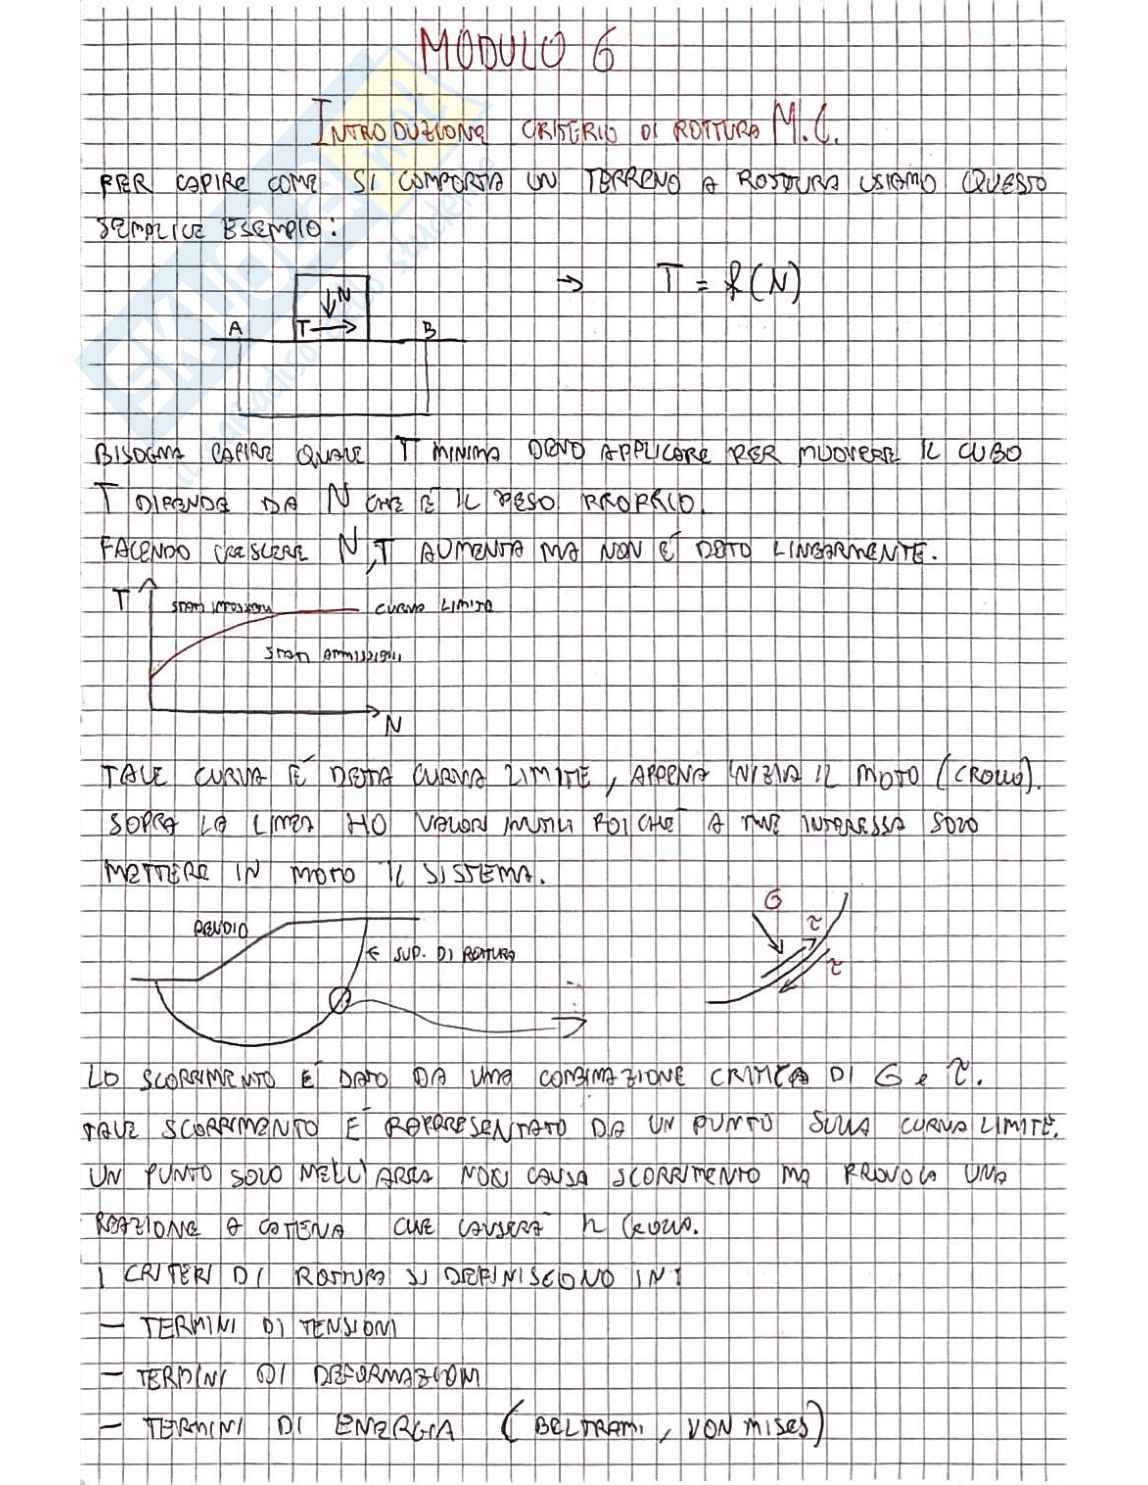 MODULO 6
INTRODUZIONE CRITERIO DI ROTTURA M.C.
PER CAPIRE COME SI COMPORTA UN TERRENO A ROTTURA USIAMO QUESTO
SEMPLICE ESEMPIO:
N
→ T = f(N)
A T B
BISOGNA CAPIRE QUALE T MINIMA DEVO APPLICARE PER MUOVERE IL CUBO
T DIPENDE DA N CHE È IL PESO PROPRIO.
FACENDO CRESCERE N, T AUMENTA MA NON È DETO LINEARMENTE.
T STATI IMPOSSIBILI CURVA LIMITE
STATI AMMISSIBILI
N
TALE CURVA È DETTA CURVA LIMITE, APPENA INIZIA IL MOTO (CROLLO).
SOPRA LA LINEA HO VALORI INUTILI POICHÈ A ME INTERESSA SOLO
METTERE IN MOTO IL SISTEMA.
PENDIO
← SUP. DI ROTTURA
σ
τ
τ
LO SCORRIMENTO È DATO DA UNA COMBINAZIONE CRITICA DI σ e τ.
TALE SCORRIMENTO È RAPPRESENTATO DA UN PUNTO SULLA CURVA LIMITE.
UN PUNTO SOLO NELL'AREA NON CAUSA SCORRIMENTO MA PROVOCA UNA
REAZIONE A CATENA CHE CAUSERÀ IL CROLLO.
I CRITERI DI ROTTURA SI DEFINISCONO IN:
- TERMINI DI TENSIONI
- TERMINI DI DEFORMAZIONI
- TERMINI DI ENERGIA (BELTRAMI, VON MISES)